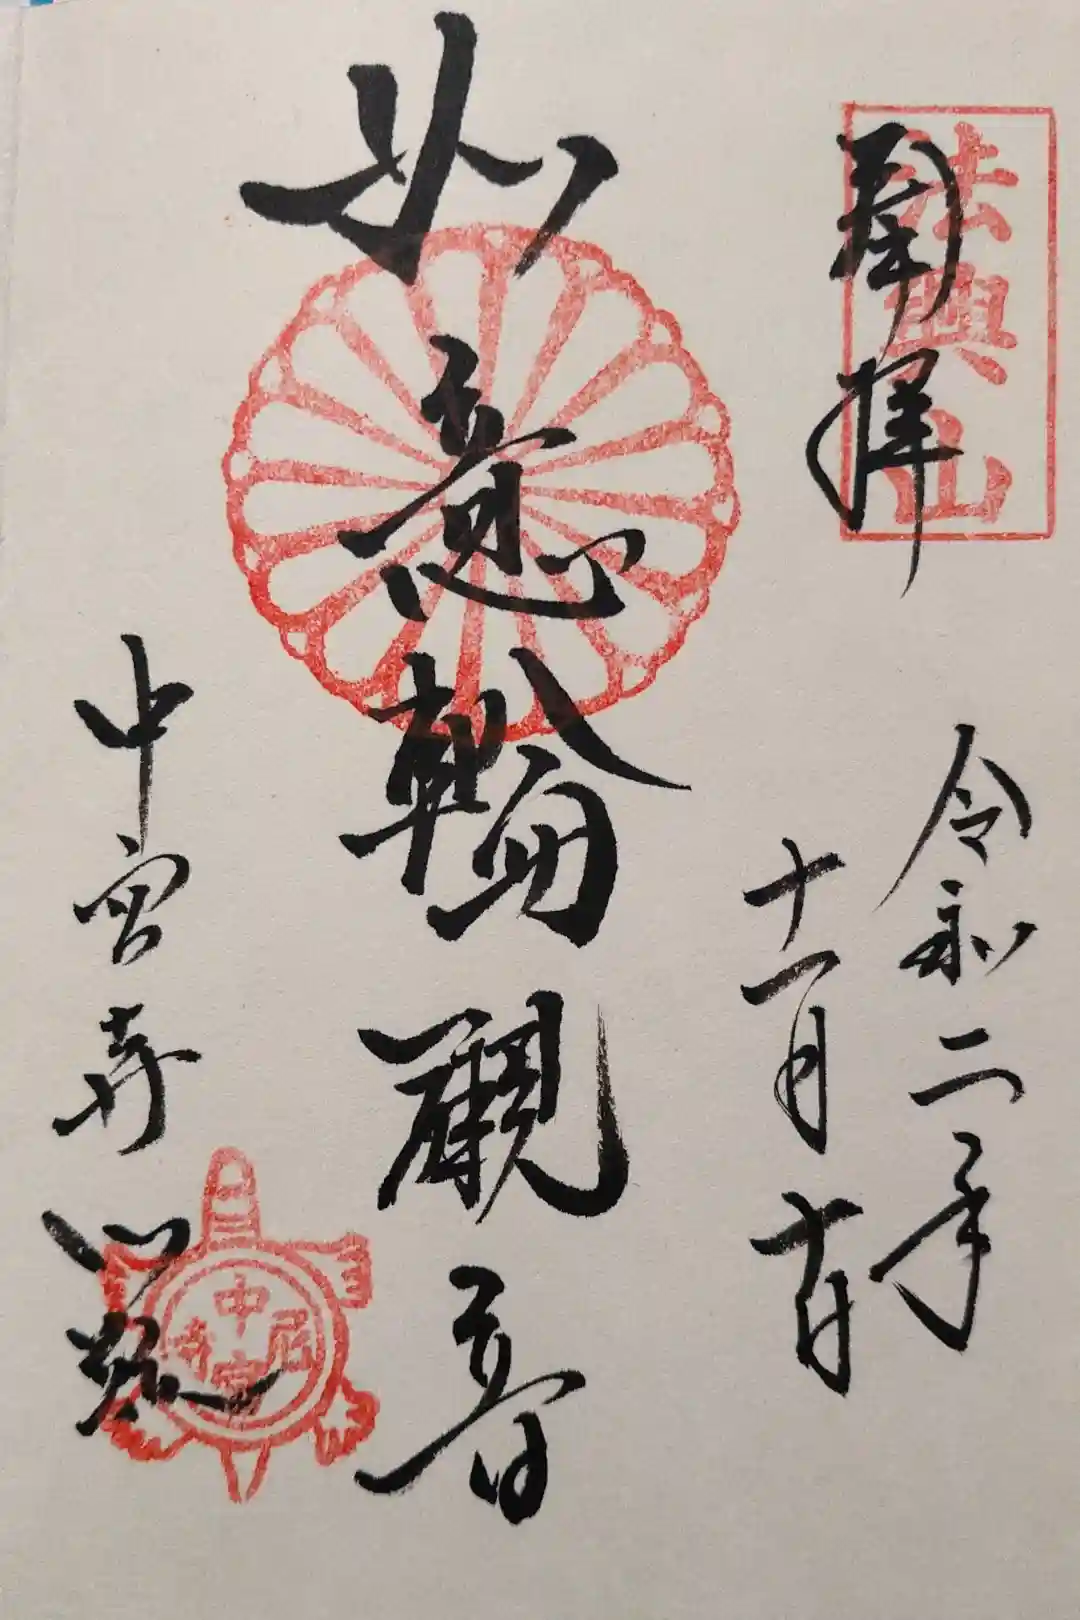 奉拝
法興山
令和二年
十一月十日
如意輪觀音
中宮寺門跡
中宮尼寺